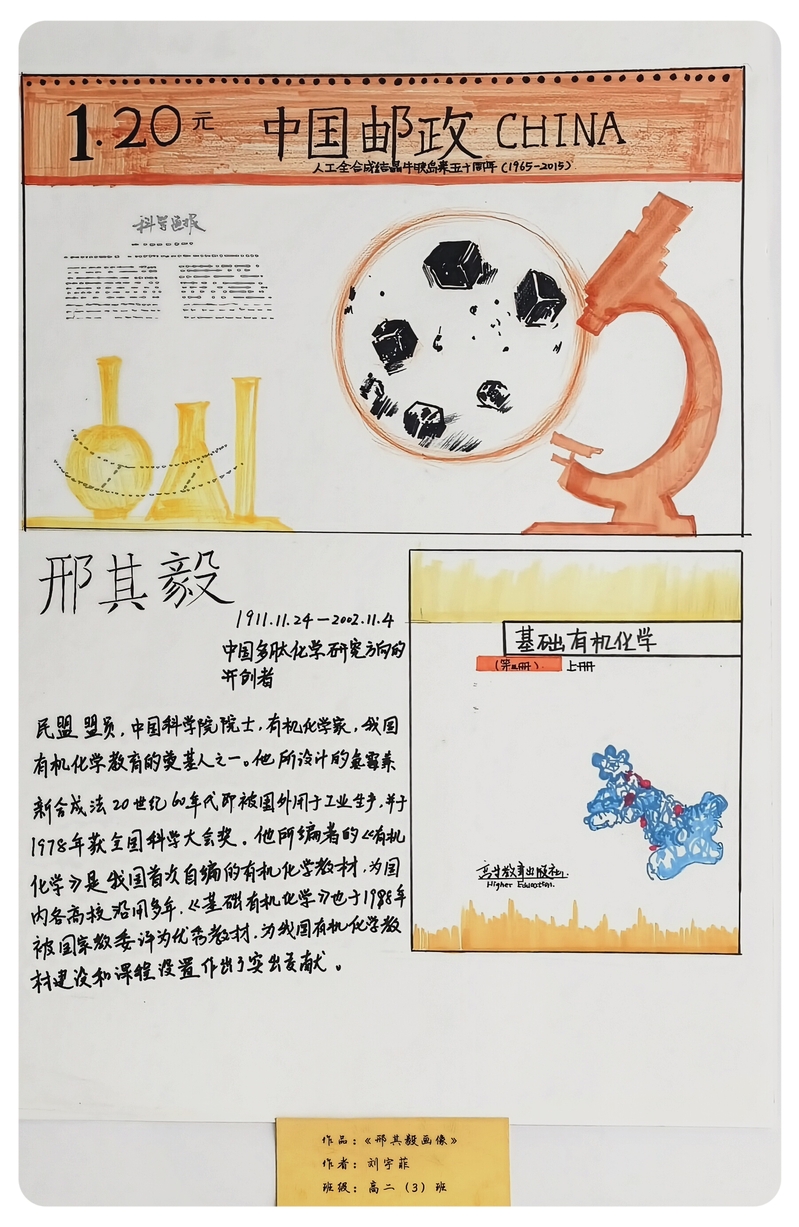 1.20元 中国邮政 CHINA
人工全合成结晶牛胰岛素五十周年(1965-2015)
科学画报
邢其毅
1911.11.24-2002.11.4
中国多肽化学研究方向的
开创者
民盟盟员,中国科学院院士,有机化学家,我国
有机化学教育的奠基人之一。他所设计的氯霉素
新合成法20世纪60年代即被国外用于工业生产,并于
1978年获全国科学大会奖。他所编著的《有机
化学》是我国首次自编的有机化学教材,为国
内各高校沿用多年,《基础有机化学》也于1988年
被国家教委评为优秀教材,为我国有机化学教
材建设和课程设置作出了突出贡献。
基础有机化学
(第三册) 上册
高等教育出版社
Higher Education.
作品:《邢其毅画像》
作者:刘宇菲
班级:高二(3)班